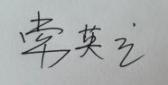 常英之